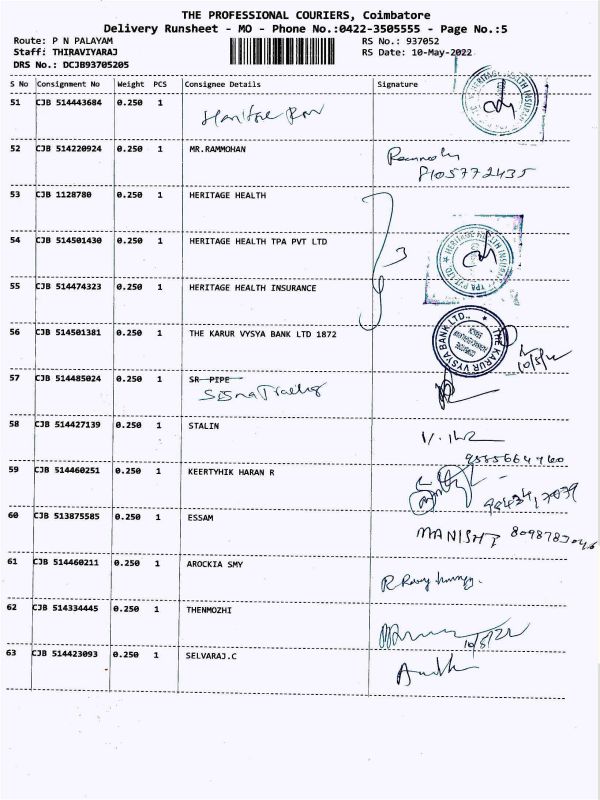 THE PROFESSIONAL COURIERS, Coimbatore
Delivery Runsheet - MO - Phone No.:0422-3505555 - Page No.:5
Route: P N PALAYAM RS No.: 937052
Staff: THIRAVIYARAJ RS Date: 10-May-2022
DRS No.: DCJB93705205
S No Consignment No Weight PCS Consignee Details Signature
51 CJB 514443684 0.250 1
52 CJB 514220924 0.250 1 MR.RAMMOHAN
8105772435
53 CJB 1128780 0.250 1 HERITAGE HEALTH
54 CJB 514501430 0.250 1 HERITAGE HEALTH TPA PVT LTD
3
55 CJB 514474323 0.250 1 HERITAGE HEALTH INSURANCE
56 CJB 514501381 0.250 1 THE KARUR VYSYA BANK LTD 1872
THE KARUR VYSYA BANK LTD.,
10/5/22
57 CJB 514485024 0.250 1 SR PIPE
58 CJB 514427139 0.250 1 STALIN
9585664760
59 CJB 514460251 0.250 1 KEERTYHIK HARAN R
60 CJB 513875585 0.250 1 ESSAM
MANISH
61 CJB 514460211 0.250 1 AROCKIA SMY
62 CJB 514334445 0.250 1 THENMOZHI
10/5/22
63 CJB 514423093 0.250 1 SELVARAJ.C